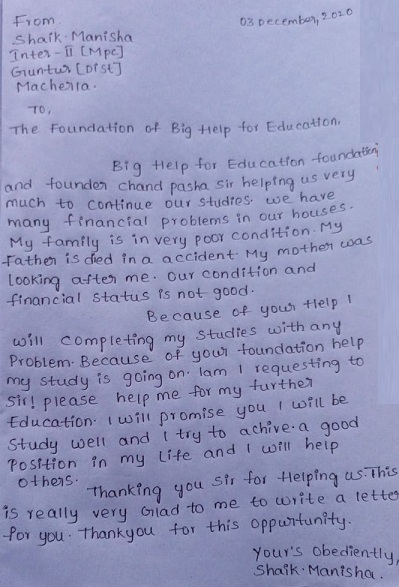 From
03 December, 2020
Shaik. Manisha
Inter-II [Mpc]
Guntur [Dist]
Macherla.
To,
The Foundation of Big Help for Education.
Big Help for Education foundation
and founder chand pasha sir helping us very
much to continue our studies. we have
many financial problems in our houses.
My family is in very poor condition. My
Father is died in a accident. My mother was
looking after me. our condition and
financial status is not good.
Because of your Help I
will completing my studies with any
Problem. Because of your foundation help
my study is going on. Iam I requesting to
Sir! please help me for my further
Education. I will promise you I will be
Study well and I try to achive. a good
Position in my Life and I will help
others.
Thanking you sir for Helping us. This
is really very Glad to me to write a lette
for you. Thankyou for this oppurtunity.
Your's obediently,
Shaik. Manisha.